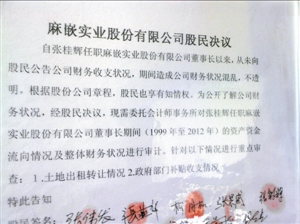 麻嵌实业股份有限公司股民决议
自张桂辉任职麻嵌实业股份有限公司董事长以来，从未向
股民公告公司财务收支状况，期间造成公司财务状况混乱，不透
明。根据股份公司章程，股民也享有知情权。为公开了解公司财
务状况，经股民决议，现需委托会计师事务所对张桂辉任麻嵌实
业股份有限公司董事长期间（1999年至2012年）的资产资金
流向情况及整体财务状况进行审计。针对以下情况进行重点审
查：1.土地出租转让情况 2.政府部门补贴收支情况
特此告知
股民签名：